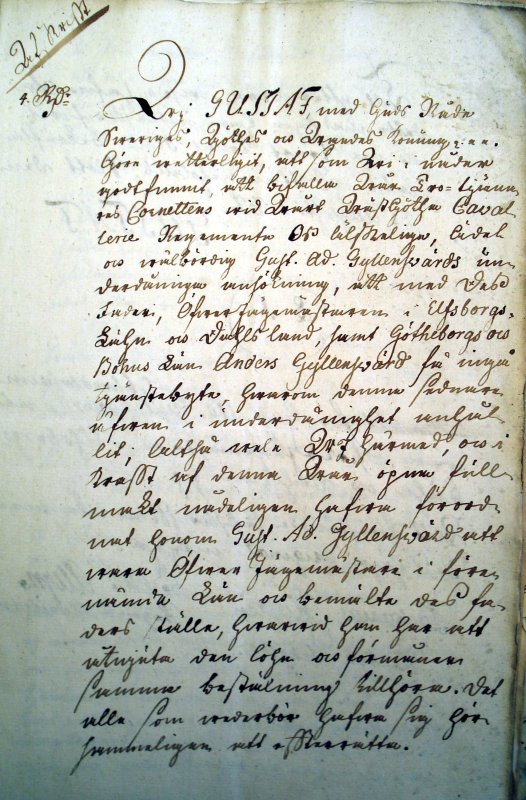 Afskrifft
Wij GUSTAF, med Guds Nåde
Sweriges, Göthes och Wendes Konung &.&.
Göre wetterligit, att som Wi i nåder
godtfunnit, att bifalla Wår Tro-tjäna-
res Cornettens wid Wårt Wästgötha Caval-
lerie Regemente Os älskelige, Ädel
och wälbördig Gust. Ad. Gyllensvärds un-
derdåniga ansökning, att med Des
Fader, Öfwerjägemästaren i Elfsborgs-
Lähn och Dahlsland, samt Götheborgs och
Bohus Län Anders Gyllensvärd få ingå
tjänstebyte, hwarom denne sednare
äfwen i underdånighet anhål-
lit; Altså wele Wi härmed, och i
kraft af denna Wår öpna full-
makt nådeligen hafwa förord-
nat honom Gust. Ad. Gyllensvärd att
wara Öfwer Jägemästare i före-
nämde Län och bemälte des fa-
ders ställe, hwarwid han har att
åtnjuta den löhn och förmåner
samma beställning tillhöra. Det
alle som wederbör hafwa sig hör-
sammeligen att efterrätta.